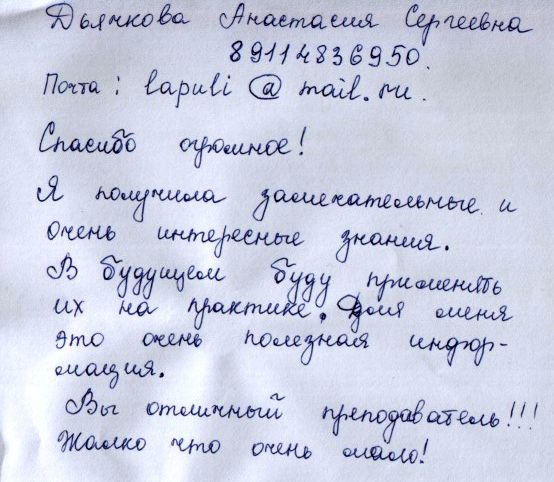 Дьячкова Анастасия Сергеевна
89114836950.
Почта: lapuli@mail.ru.
Спасибо огромное!
Я получила замечательные и
очень интересные знания.
В будущем буду применять
их на практике. Для меня
это очень полезная инфор-
мация.
Вы отличный преподаватель!!!
Жалко что очень мало!